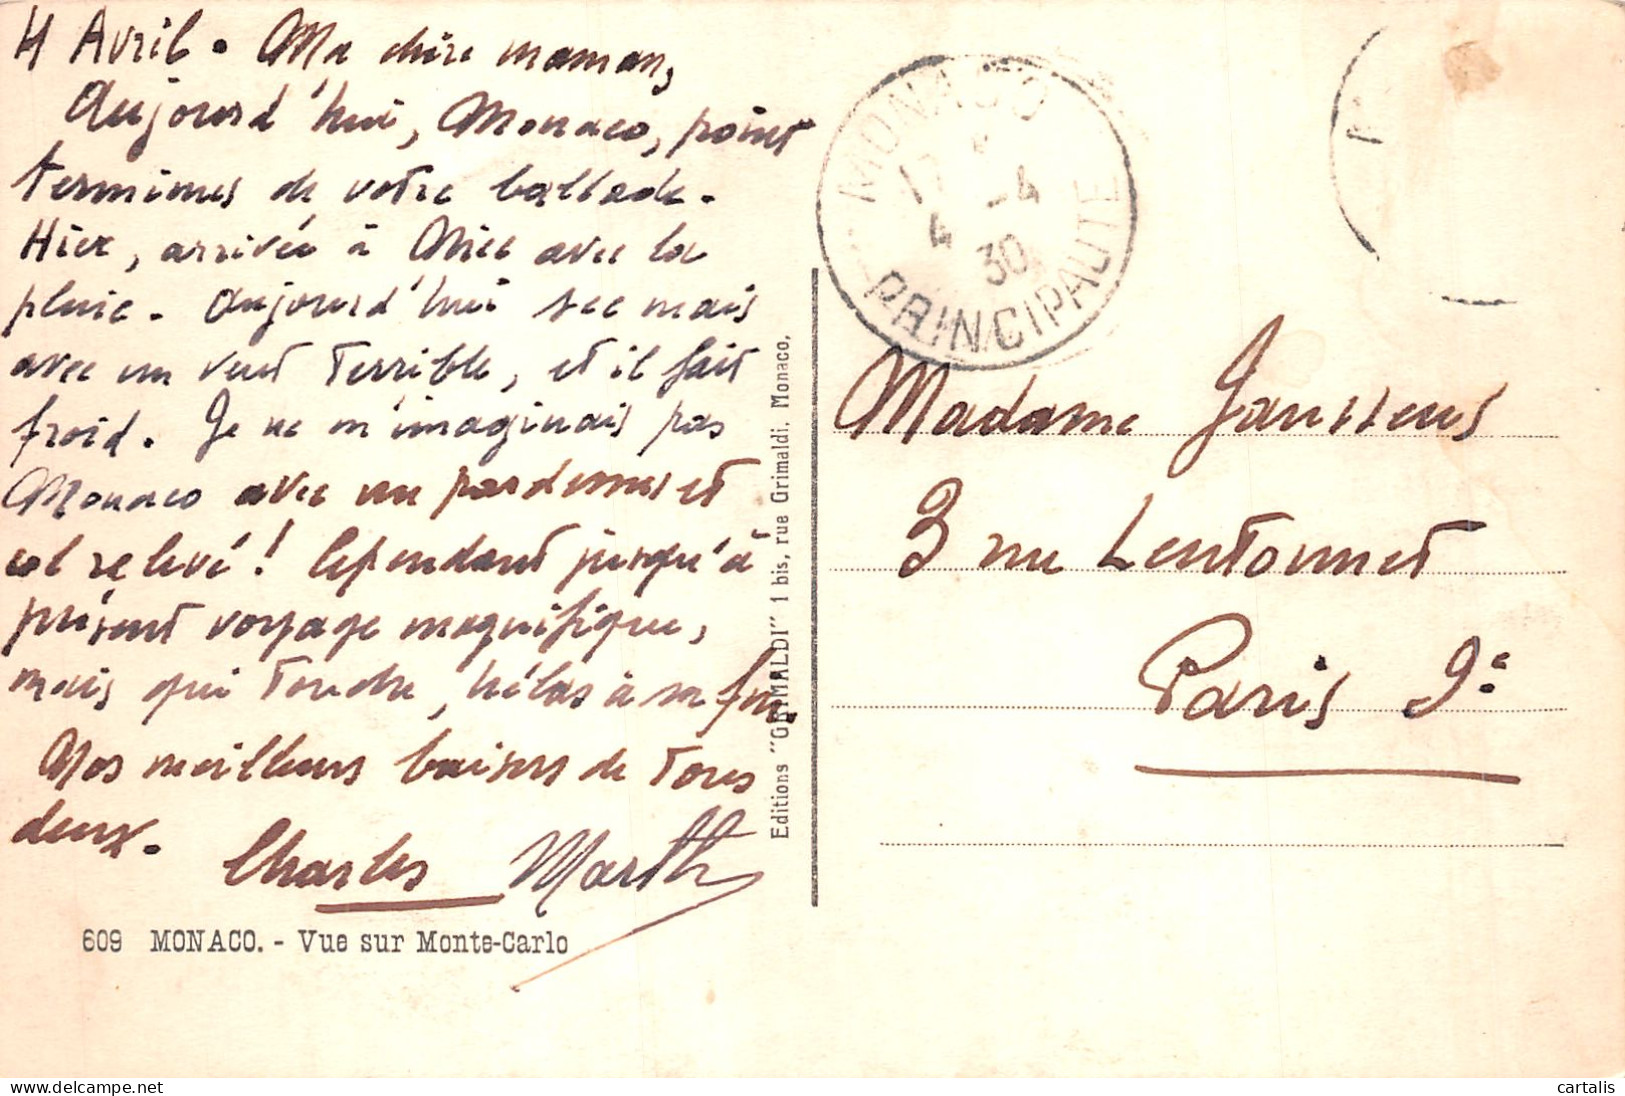 4 Avril. Ma chère maman,
Aujourd'hui, Monaco, point
terminus de votre ballade.
Hier, arrivée à Nice avec la
pluie. Aujourd'hui sec mais
avec un vent terrible, et il fait
froid. Je ne m'imaginais pas
Monaco avec un pardessus et
col relevé! Cependant jusqu'à
présent voyage magnifique,
mais qui touche, hélas à sa fin.
Nos meilleurs baisers de tous
deux.
Charles Marth
609 MONACO. - Vue sur Monte-Carlo
Editions "GRIMALDI" 1 bis, rue Grimaldi, Monaco.
MONACO
17
4 -4
30
PRINCIPAUTE
Madame Janssens
3 rue Lentonnet
Paris 9e
delcampe.net
cartalis